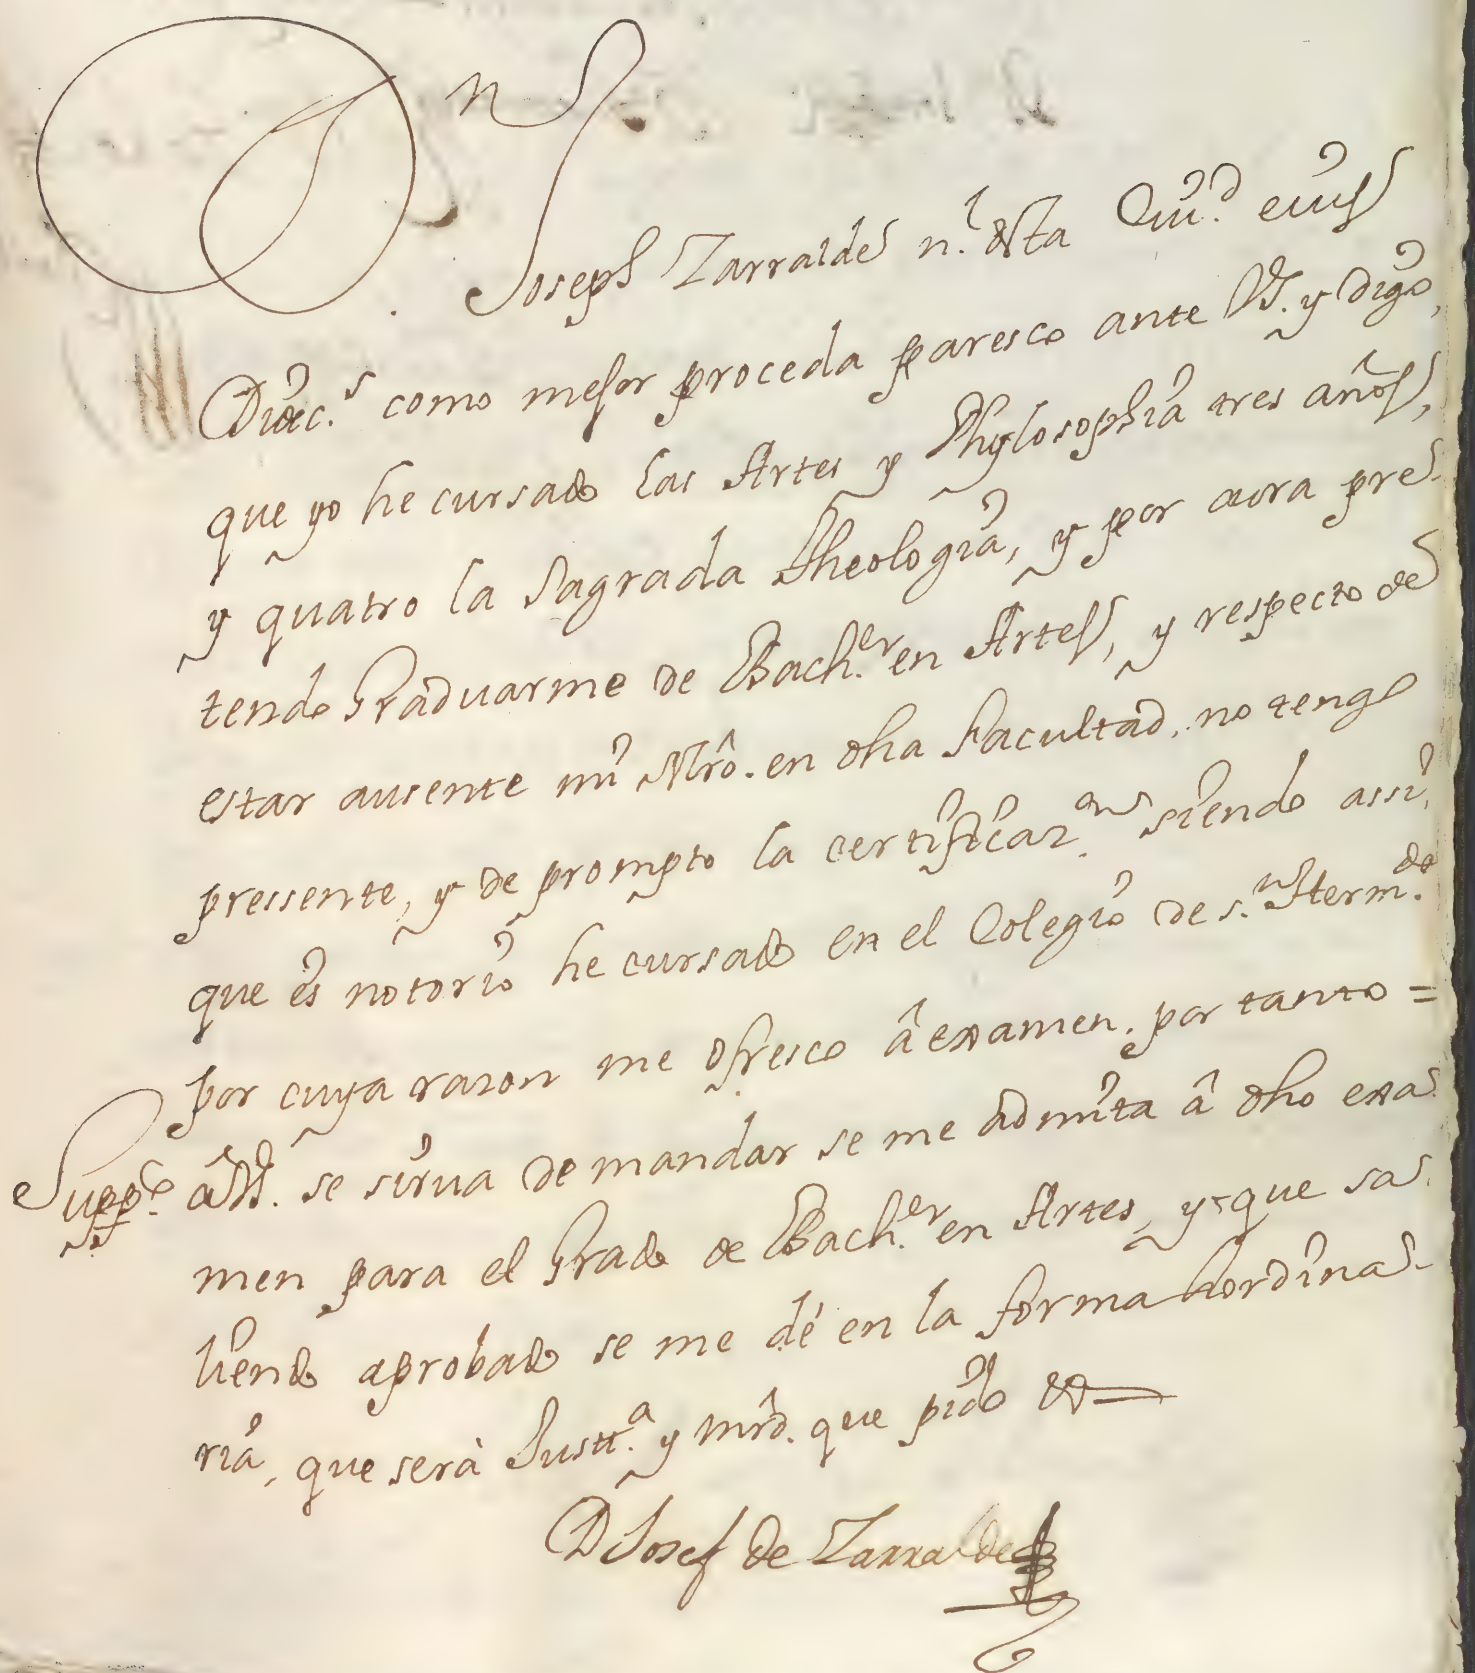 Dn Joseph Zarralde n.l desta Ciu.d en us
como mejor proceda paresco ante Vs. y Digo,
que yo he cursado las Artes y Phylosophia tres años,
y quatro la Sagrada Theologia, y por aora pre-
tendo Graduarme de Bach.er en Artes, y respecto de
estar ausente mi Mrô. en dha facultad, no tengo
pressente, y de prompto la certificaz.on siendo assi,
que es notorio he cursado en el Colegio de s.n Herm.do
por cuya razon me ofresco â examen. por tanto =
Supp.co â Vs. se sirva de mandar se me admita â dho exa-
men para el Grado de Bach.er en Artes, y que sa-
liendo aprobado se me dé en la forma hordina-
ria, que serà Justt.a y mrd. que pido &
D Josef de Zarralde